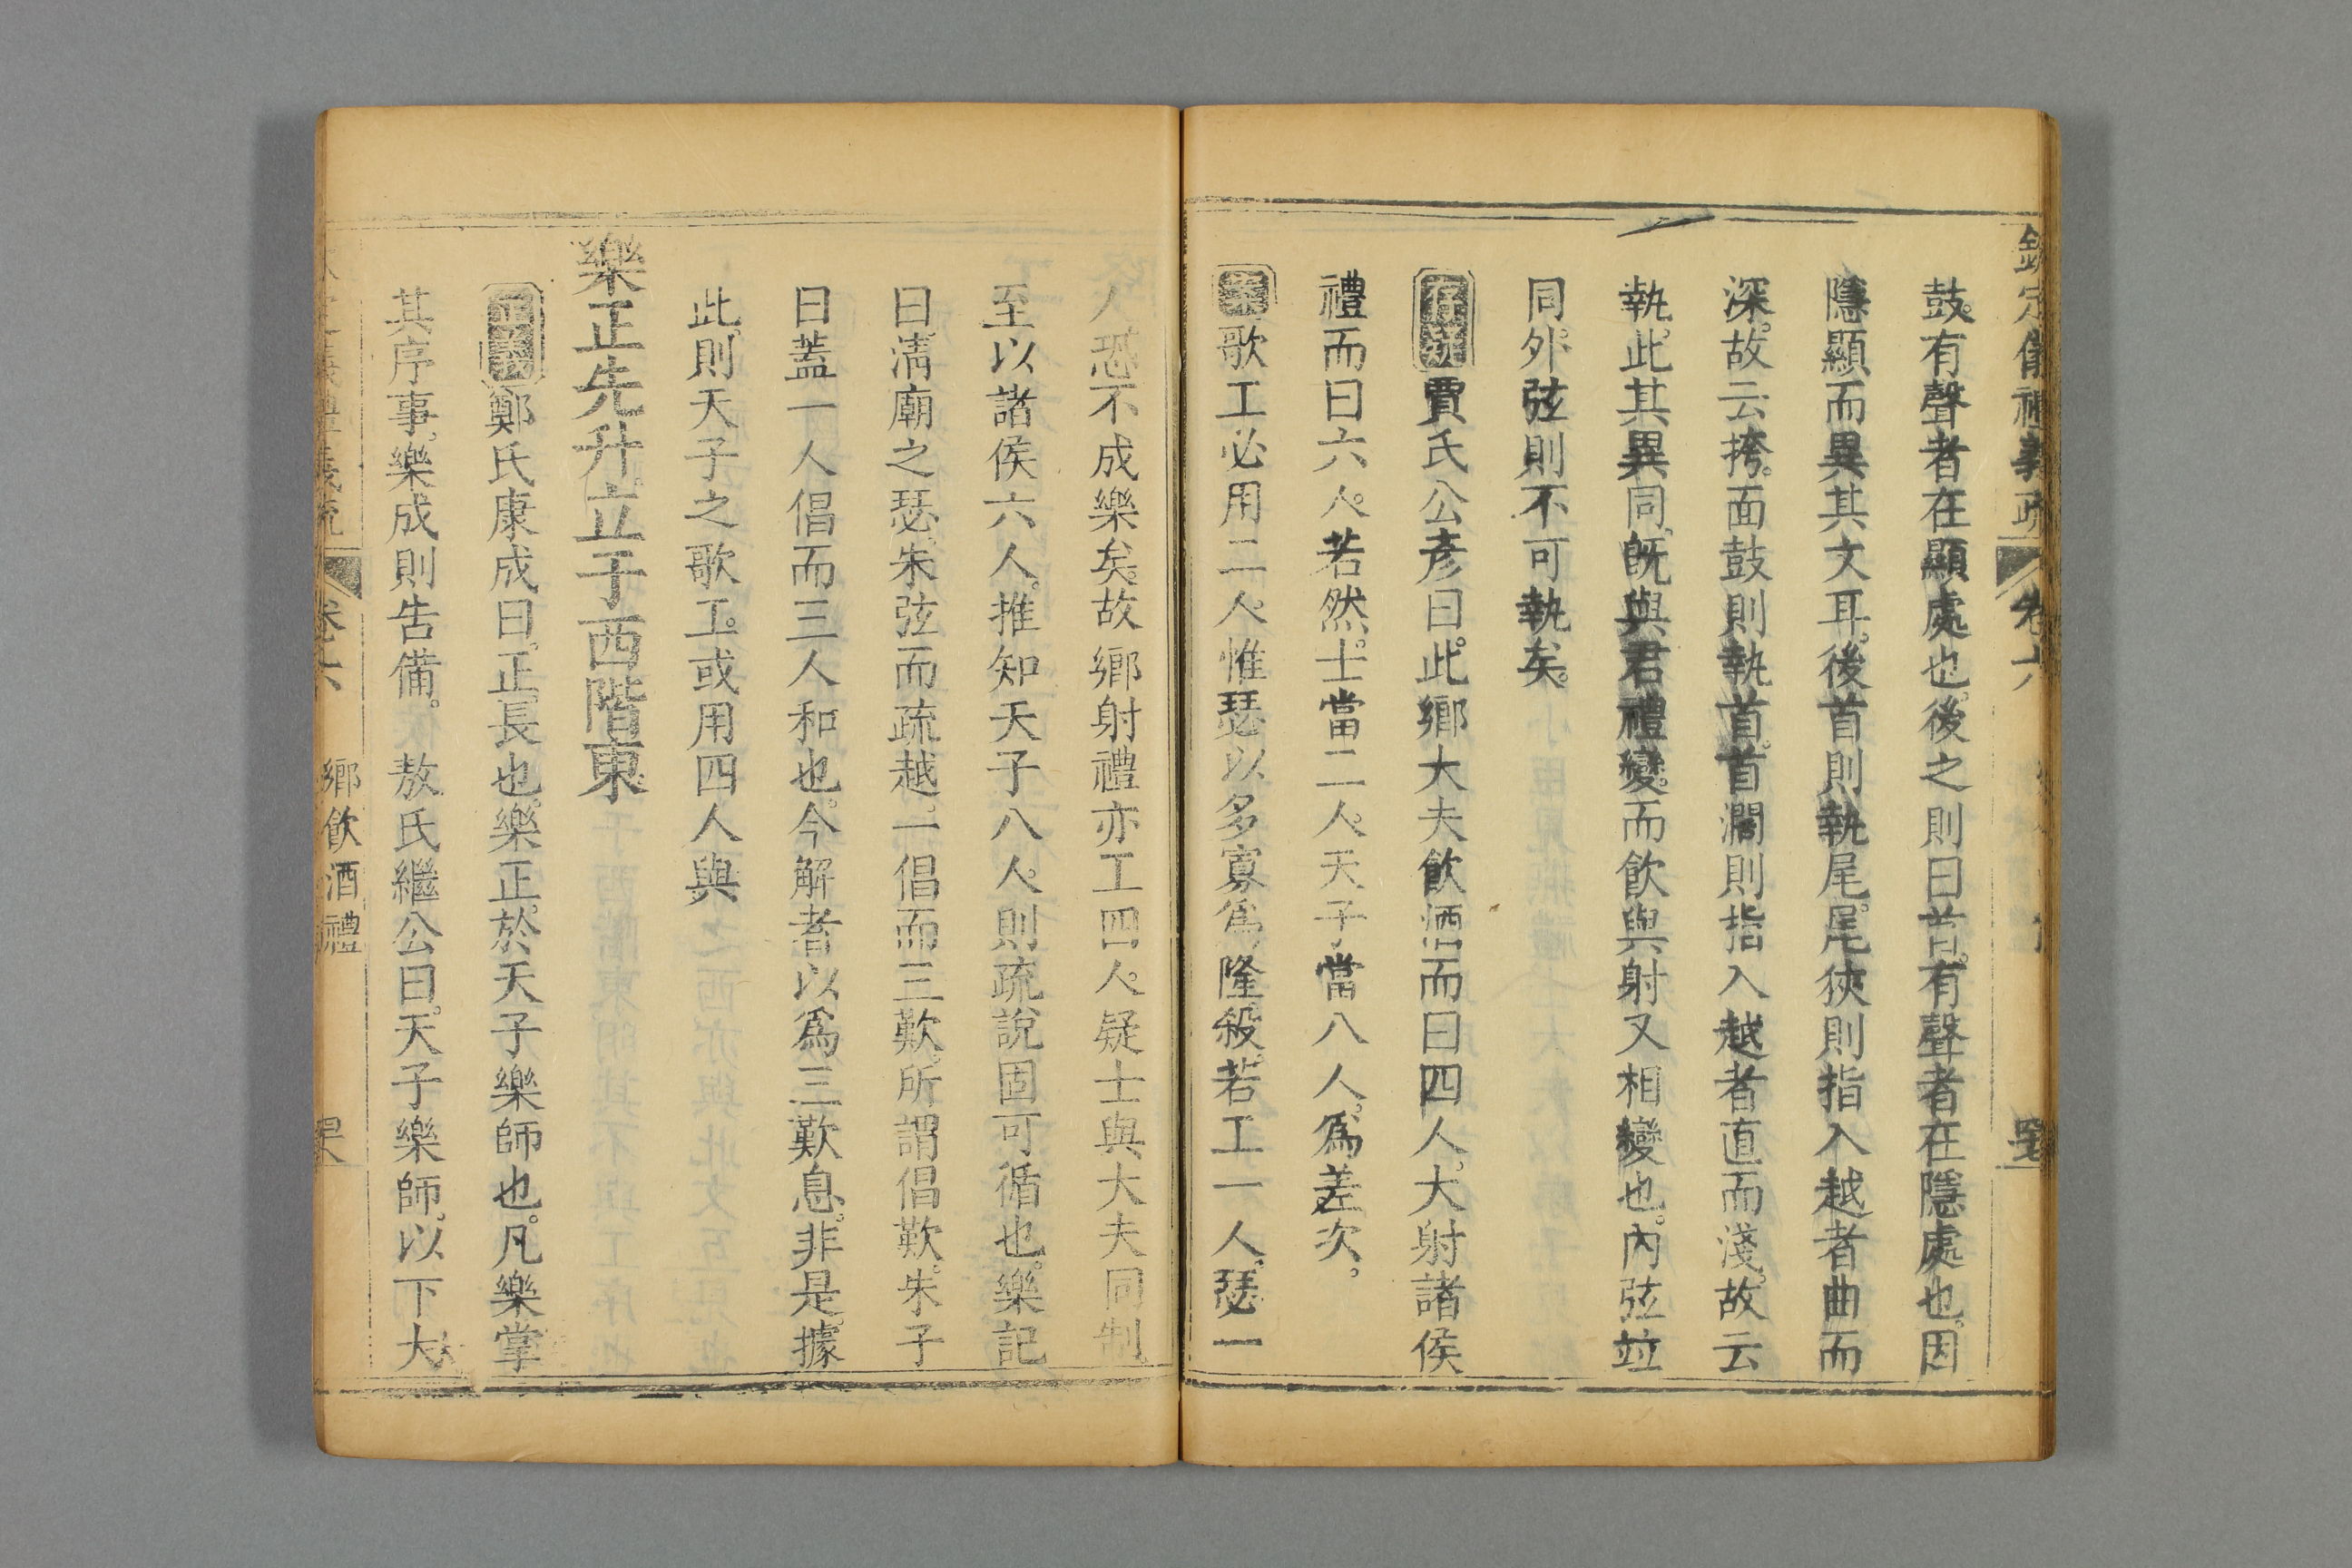 欽定儀禮義疏 卷六
鼓。有聲者在顯處也。後之則曰首。有聲者在隱處也。因
隱顯而異其文耳。後首則執尾。尾狹則指入越者曲而
深。故云挎。面鼓則執首。首濶則指入越者直而淺。故云
執。此其異同。旣與君禮變。而飮與射又相變也。內弦竝
同。外弦則不可執矣。
存疑賈氏公彥曰。此鄉大夫飮酒而曰四人。大射諸侯
禮而曰六人。若然。士當二人。天子當八人。爲差次。
案歌工必用二人。惟瑟以多寡爲隆殺。若工一人。瑟一
人恐不成樂矣。故鄉射禮亦工四人。疑士與大夫同制。
至以諸侯六人。推知天子八人。則疏說固可循也。樂記
曰。清廟之瑟。朱弦而疏越。一倡而三歎。所謂倡歎。朱子
曰蓋一人倡而三人和也。今解者以爲三歎息。非是。據
此。則天子之歌工。或用四人與
樂正先升立于西階東
正義鄭氏康成曰。正。長也。樂正。於天子樂師也。凡樂掌
其序事。樂成則告備。 敖氏繼公曰。天子樂師。以下大
卷六 鄉飮酒禮